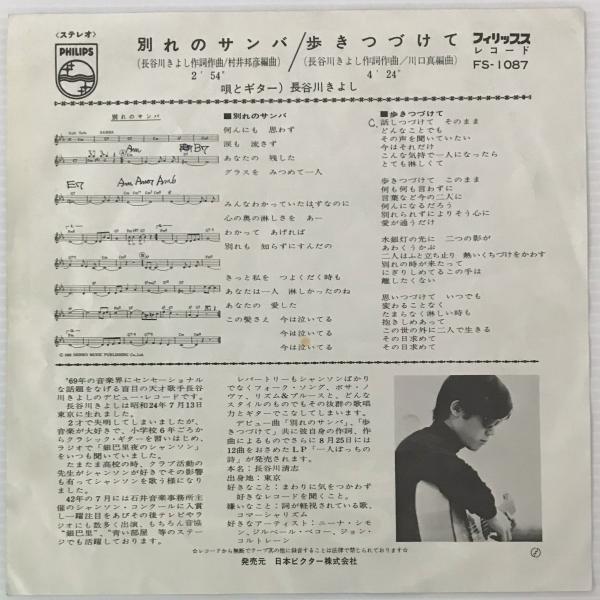 〈ステレオ〉
PHILIPS
別れのサンバ/歩きつづけて
(長谷川きよし作詞作曲/村井邦彦編曲)
2’54”
(長谷川きよし作詞作曲/川口真編曲)
4’24”
唄とギター)長谷川きよし
フィリップス
レコード
FS-1087
別れのサンバ
■別れのサンバ
何んにも 思わず
涙も 流さず
あなたの 残した
グラスを みつめて一人
みんなわかっていたはずなのに
心の奥の淋しさを あー
わかって あげれば
別れも 知らずにすんだの
きっと私を つよくだく時も
あなたは一人 淋しかったのね
あなたの 愛した
この髪さえ 今は泣いてる
今は泣いてる
今は泣いてる
■歩きつづけて
C.
話しつづけて そのまま
どんなことでも
その声を聞いていたい
今はそれだけ
こんな気持で一人になったら
とても淋しくて
歩きつづけて このまま
何も何も言わずに
言葉など今の二人に
何んになるだろう
別れられずによりそう心に
愛が通うだけ
水銀灯の光に 二つの影が
あわくうかぶ
二人はふと立ち止り 熱いくちづけをかわす
別れの時が来たって
にぎりしめてるこの手は
離したくない
思いつづけて いつでも
変わることなく
たまらなく淋しい時も
抱きしめあって
この世の外に二人で生きる
その日求めて
その日求めて
’69年の音楽界にセンセーショナル
な話題をなげる盲目の天才歌手長谷
川きよしのデビュー・レコードです。
長谷川きよしは昭和24年7月13日
東京に生れました。
2才で失明してしまいましたが、
音楽が大好きで、小学校6年ごろか
らクラシック・ギターを習いはじめ、
ラジオで「銀巴里夜のシャンソン」
をいつも聞いていました。
たまたま高校の時、クラブ活動の
先生がシャンソンが好きでその影響
も有ってシャンソンを歌う様になり
ました。
42年の7月には石井音楽事務所主
催のシャンソン・コンクールに入賞
し一躍注目をあびその後テレビやラ
ジオにも数多く出演、もちろん音協
“銀巴里”、“青い部屋”等のステー
ジでも活躍しております。
レパートリーもシャンソンばかり
でなくフォーク・ソング、ボサ・ノ
ヴァ、リズム&ブルースと、どんな
スタイルのものでもその抜群の歌唱
力とギターでこなしてしまいます。
デビュー曲「別れのサンバ」、「歩
きつづけて」共に彼自身の作詞、作
曲によるものでさらに8月25日には
12曲をおさめたLP「一人ぼっちの
詩」が発売されます。
本名:長谷川清志
出身地:東京
好きなこと:まわりに気をつかわず
好きなレコードを聞くこと。
嫌いなこと:詞が軽視されている歌、
コマーシャリズム
好きなアーティスト:ニーナ・シモ
ン、ジルベール・ベコー、ジョン・
コルトレーン
☆レコードから無断でテープ其の他に録音することは法律で禁じられております☆
発売元 日本ビクター株式会社